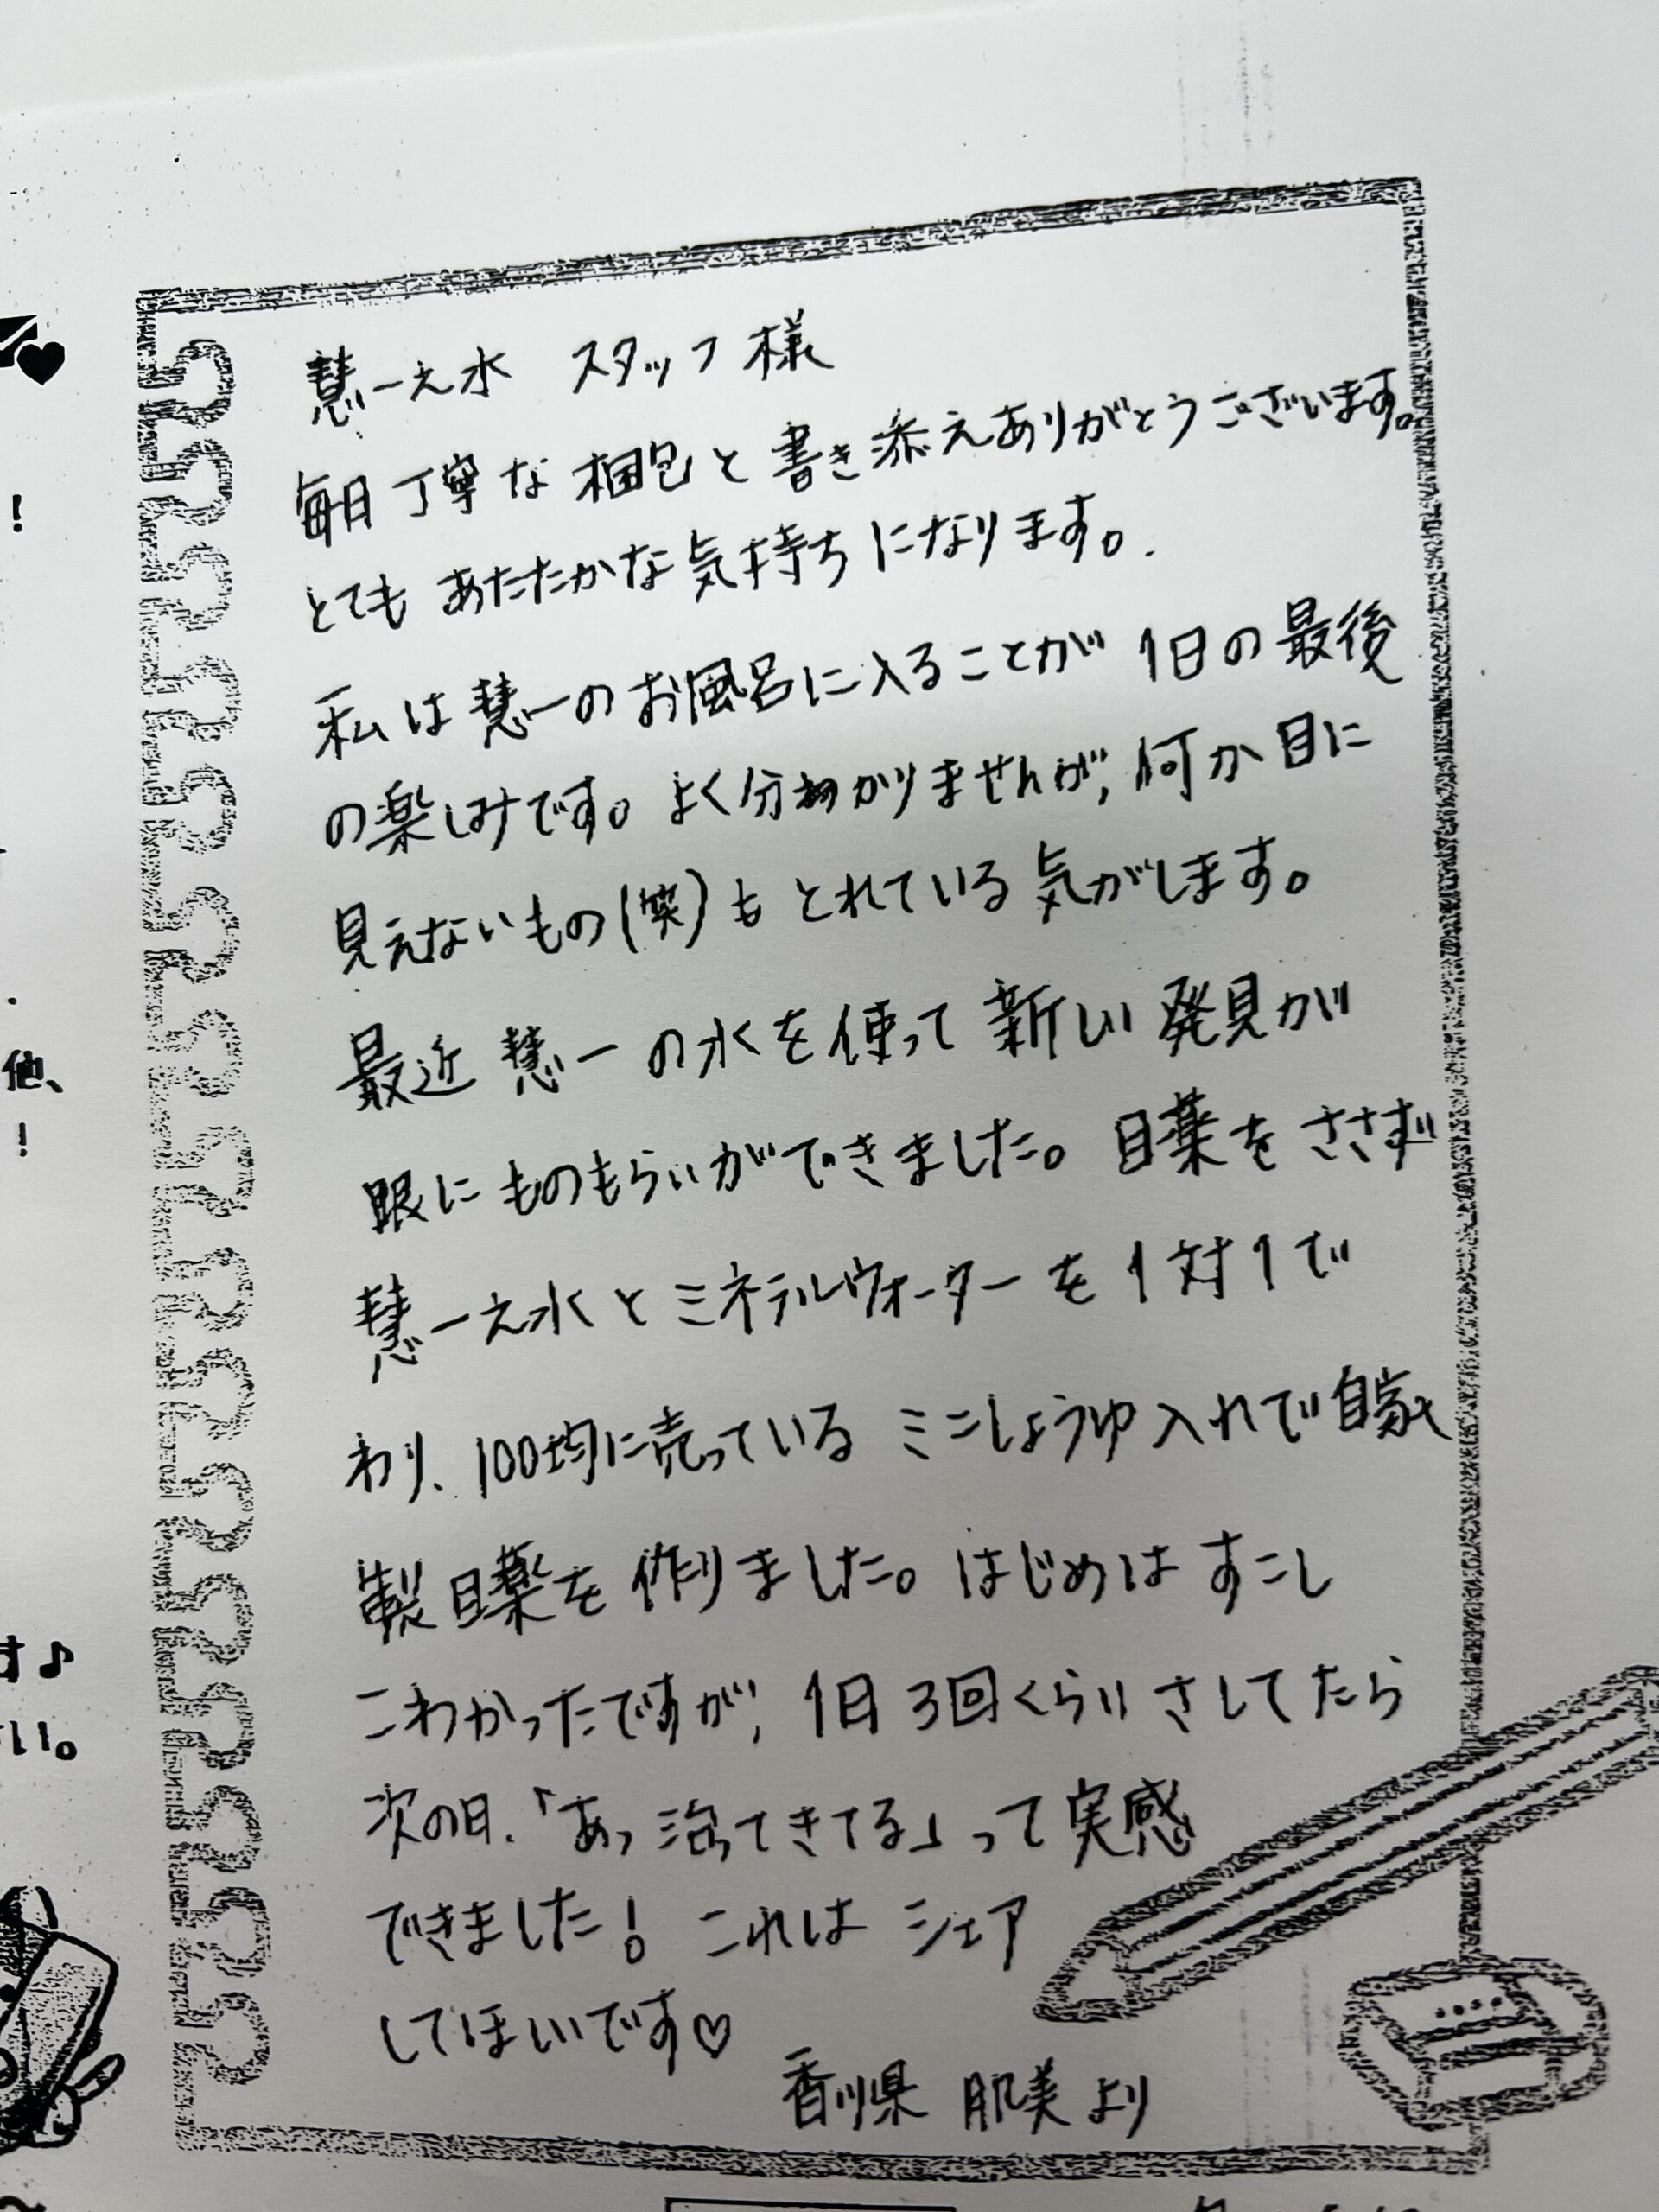 慧一之水 スタッフ様
毎日丁寧な梱包と書き添えありがとうございます。
とてもあたたかな気持ちになります。
私は慧一のお風呂に入ることが1日の最後
の楽しみです。よく分かりませんが、何か目に
見えないもの(笑)もとれている気がします。
最近慧一の水を使って新しい発見が
眼にものもらいができました。目薬をささず
慧一之水とミネラルウォーターを1対1で
わり、100均に売っているミニしょうゆ入れで自家
製目薬を作りました。はじめはすこし
こわかったですが、1日3回くらいさしてたら
次の日、「あっ治ってきてる」って実感
できました!これはシェア
してほしいです♡
香川県 肌美より
!
他、
!
す♪
い。